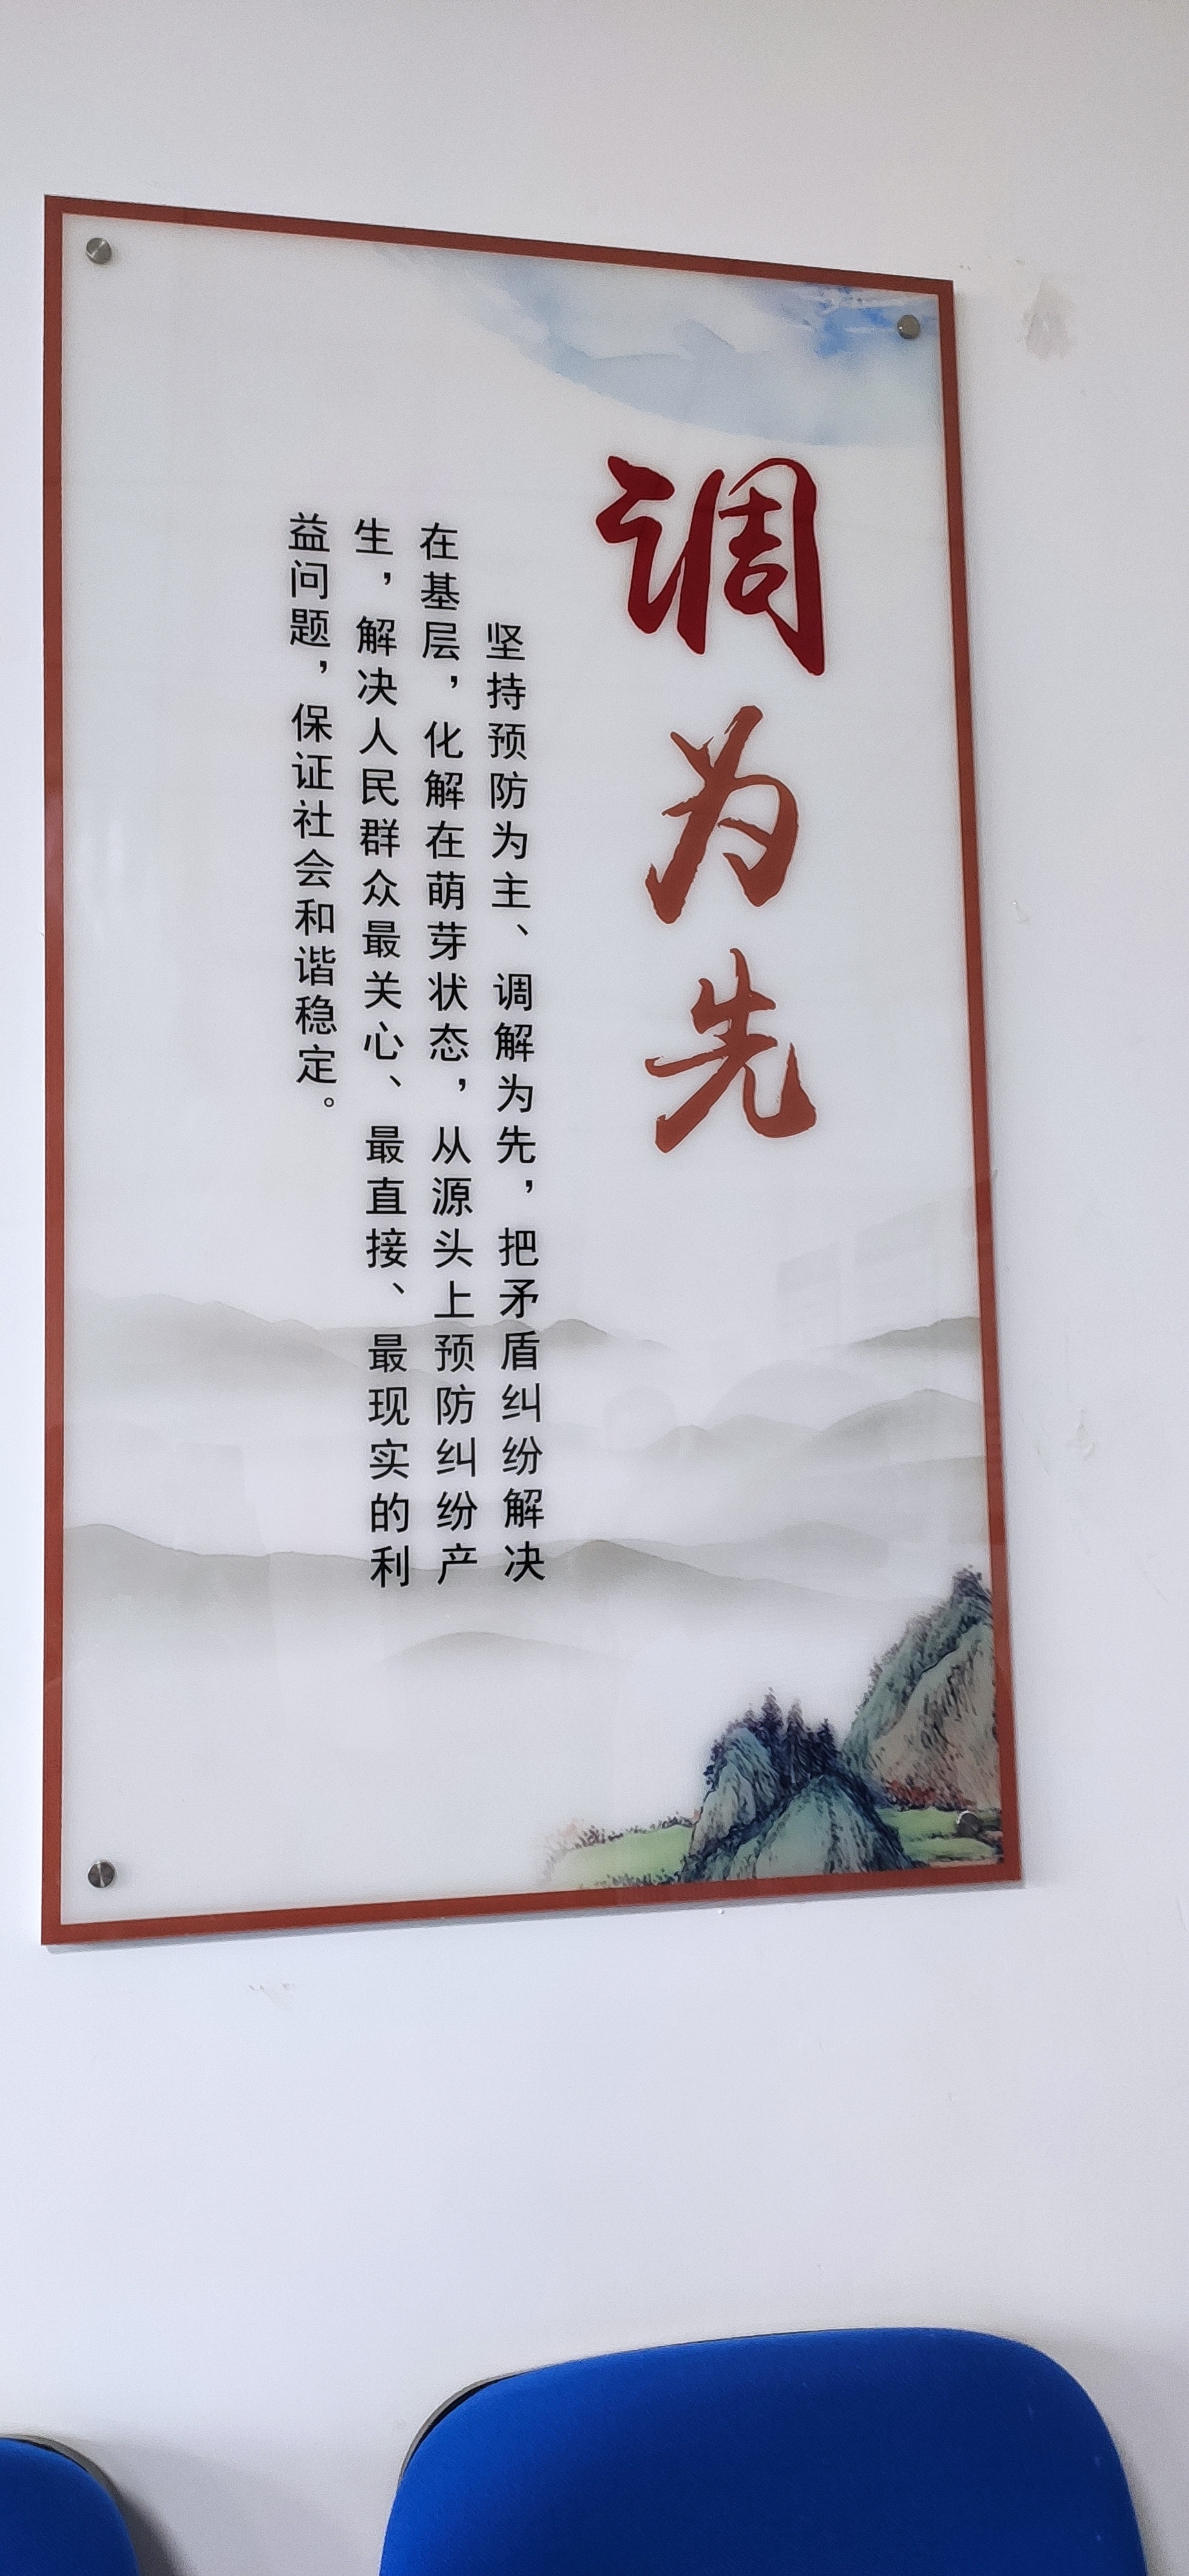 调为先
坚持预防为主、调解为先，把矛盾纠纷解决
在基层，化解在萌芽状态，从源头上预防纠纷产
生，解决人民群众最关心、最直接、最现实的利
益问题，保证社会和谐稳定。